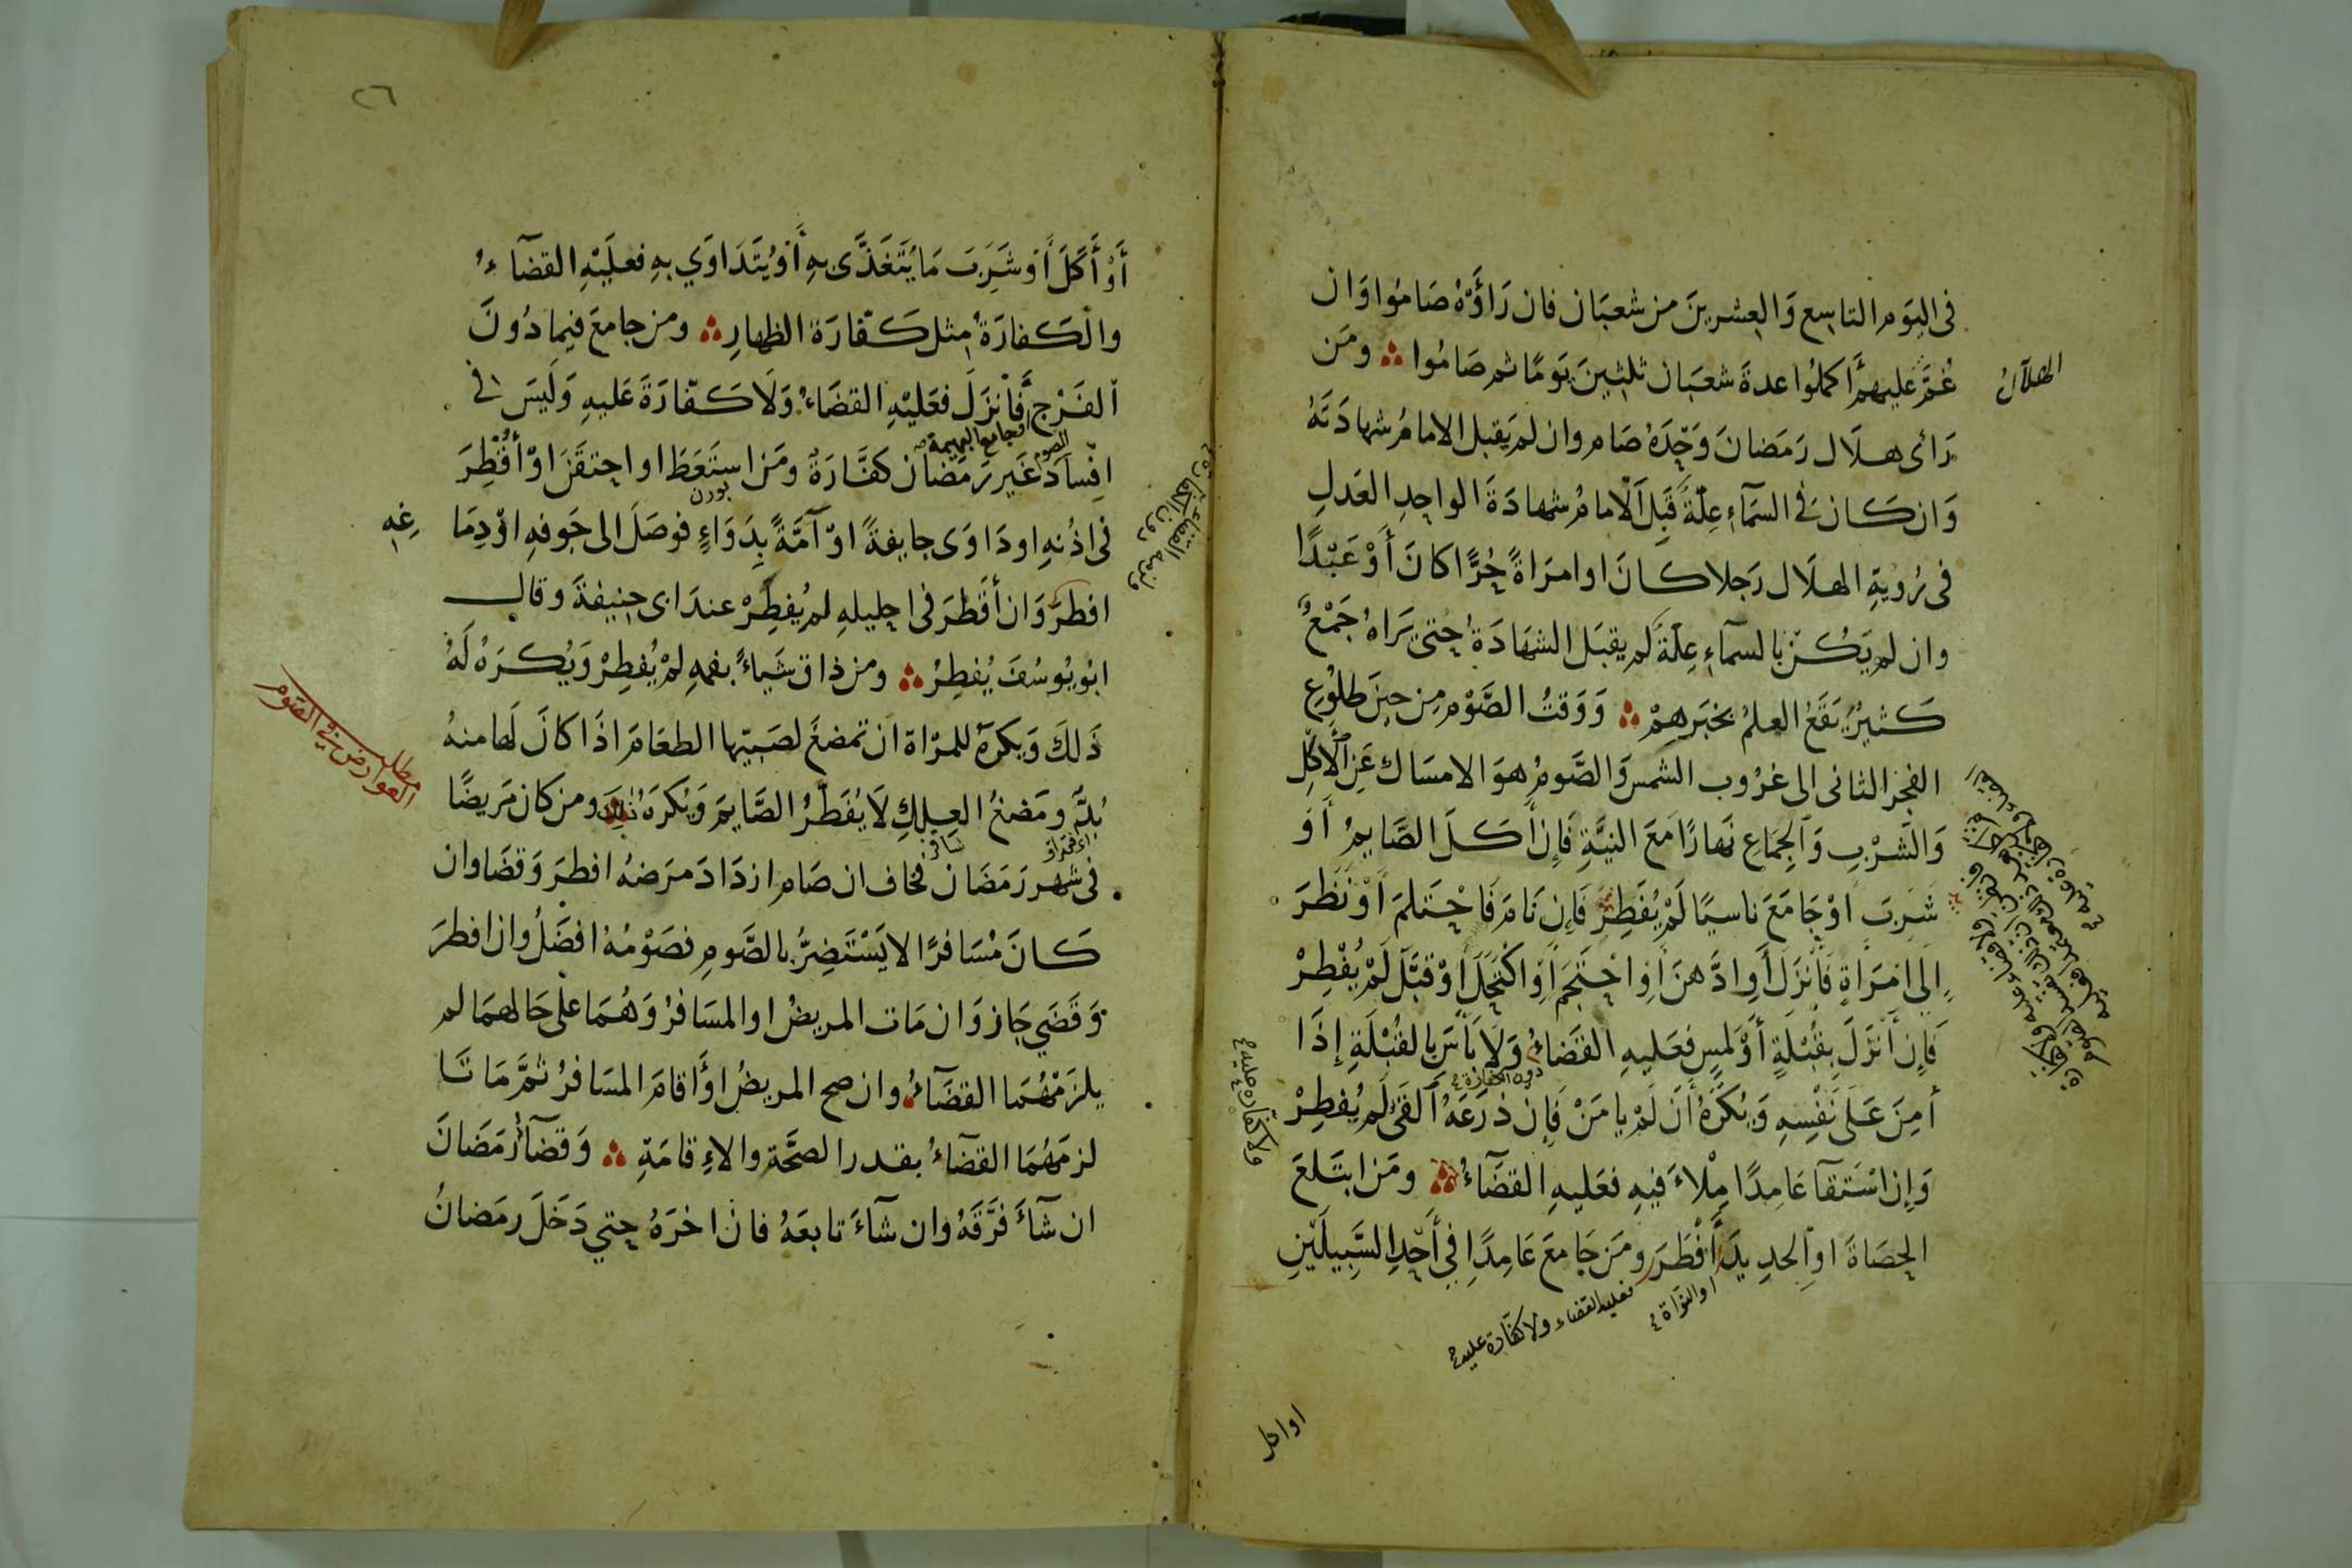 الهلال
فى اليوم التاسع والعشرين من شعبان فان رأوه صاموا وان
غم عليهم أكملوا عدة شعبان ثلثين يوما ثم صاموا ومن
رأى هلال رمضان وحده صام وان لم يقبل الامام شهادته
وان كان في السماء علة قبل الامام شهادة الواحد العدل
فى رؤية الهلال رجلا كان او امراة حرا كان أو عبدا
وان لم يكن بالسماء علة لم يقبل الشهادة حتى يراه جمع
كثير يقع العلم بخبرهم ووقت الصوم من حين طلوع
الفجر الثانى الى غروب الشمس والصوم هو الامساك عن الأكل
والشرب والجماع نهارا مع النية فإن أكل الصايم أو
شرب أو جامع ناسيا لم يفطر فإن نام فاحتلم أو نظر
إلى امرأة فأنزل أو ادهن أو احتجم أو اكتحل أو قبل لم يفطر
فإن أنزل بقبلة أو لمس فعليه القضاء ولا بأس بالقبلة إذا
دون الكفارة
أمن على نفسه ويكره أن لم يامن فإن ذرعه القئ لم يفطر
وإن استقآ عامدا ملاء فيه فعليه القضآء ومن ابتلع
ولا كفارة عليه
الحصاة او الحديد أفطر ومن جامع عامدا في أحد السبيلين
او النواة
فعليه القضاء ولا كفارة عليه
او اكل
٢٦
أو أكل أو شرب ما يتغذى به أو يتداوي به فعليه القضآء
والكفارة مثل كفارة الظهار ومن جامع فيما دون
الفرج فأنزل فعليه القضاء ولا كفارة عليه وليس في
او جامع البهيمة
الصوم
افساد غير رمضان كفارة ومن استعط او احتقن او أقطر
فى اذنه او داوى جايفة او آمة بدواء فوصل الى جوفه او دماغه
افطر وان أقطر فى احليله لم يفطر عند ابى حنيفة وقال
ابو يوسف يفطر ومن ذاق شياء بفمه لم يفطر ويكره له
ذلك ويكره للمراة ان تمضغ لصبيها الطعام اذا كان لها منه
بد ومضغ العلك لا يفطر الصايم ويكره ذلك ومن كان مريضا
مطلب
العوارض في الصوم
فى شهر رمضان فخاف ان صام ازداد مرضه افطر وقضا وان
كان مسافرا لا يستضر بالصوم فصومه افضل وان افطر
وقضي جاز وان مات المريض او المسافر وهما على حالهما لم
يلزمهما القضآء وان صح المريض او أقام المسافر ثم ماتا
لزمهما القضآء بقدر الصحة والاقامة وقضآء رمضان
ان شآء فرقه وان شآء تابعه فان اخره حتي دخل رمضان